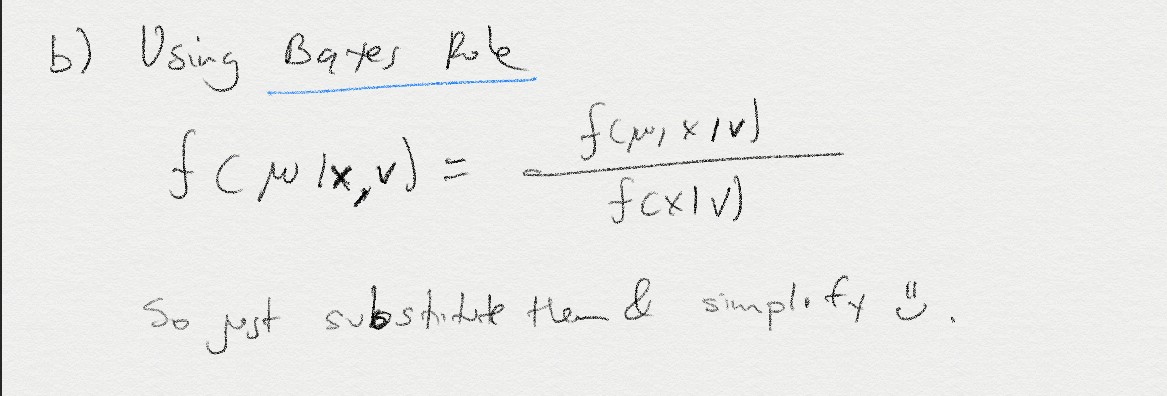 b) Using Bayes Rule
f(μ|x,v) = f(μ,x|v) / f(x|v)
So just substitute them & simplify :)